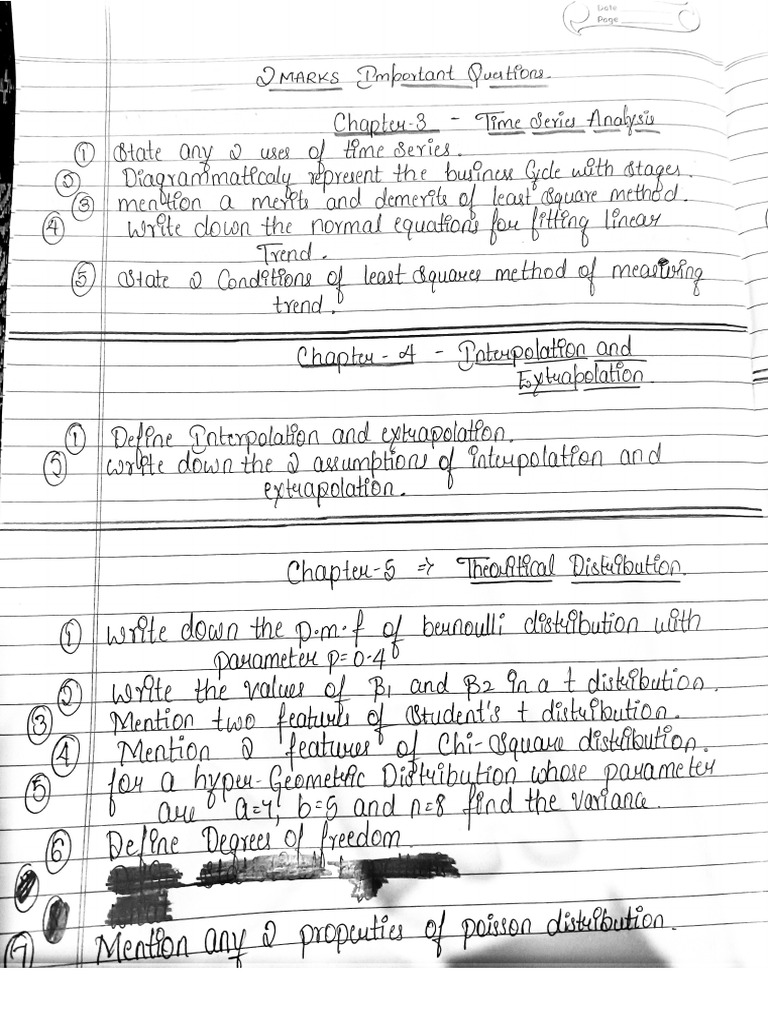 Date
Page
2 MARKS Important Questions.
Chapter-3 - Time Series Analysis
① State any 2 uses of time series.
② Diagrammaticaly represent the business Cycle with stages.
③ mention a merits and demerits of least square method.
④ Write down the normal equations for fitting linear
Trend.
⑤ State 2 Conditions of least squares method of measuring
trend.
Chapter - 4 - Interpolation and
Extrapolation
① Define Interpolation and extrapolation.
⑤ Write down the 2 assumptions of interpolation and
extrapolation.
Chapter-5 => Theoritical Distribution
① Write down the p.m.f of bernoulli distribution with
parameter p=0.4
② Write the values of B1 and B2 in a t distribution.
③ Mention two features of Student's t distribution.
④ Mention 2 features of Chi-Square distribution.
⑤ for a hyper-Geometric Distribution whose parameter
are b=5 and n=8 find the variance.
⑥ Define Degrees of freedom
⑦ Mention any 2 properties of poisson distribution.